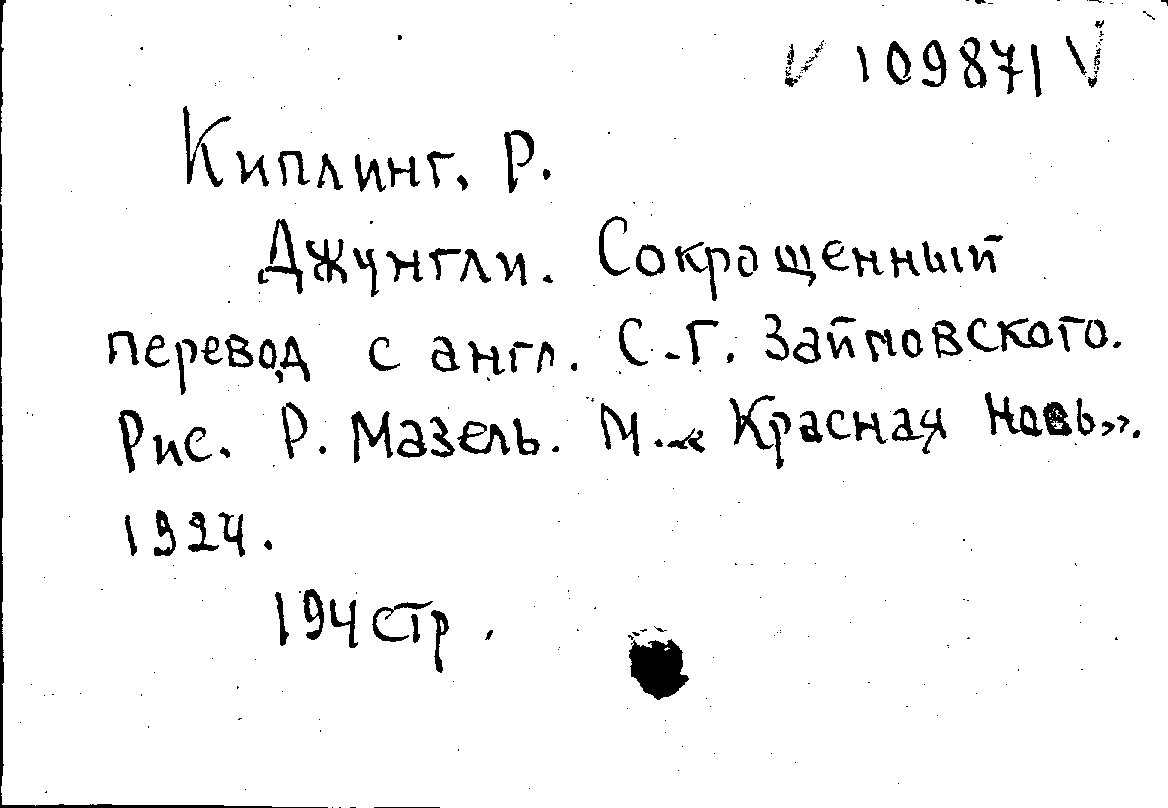 V 109871 V
Киплинг, Р.
Джунгли. Сокращенный
перевод с англ. С.Г. Займовского.
Рис. Р. Мазель. М. « Красная Новь».
1924.
194 стр.